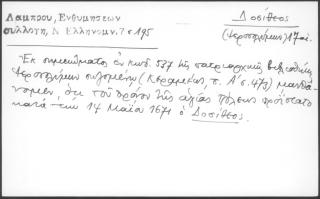 Λαμπρου, Ενθυμησεων
συλλογη, Ν. Ελληνομν. 7 σ 195
Δοσίθεος
(Ιεροσολύμων) 17 αἰ.
Ἐκ σημειώματος ἐν κωδ. 537 τῆς πατριαρχικῆς βιβλιοθήκης
Ἱεροσολύμων συλλογῆς (Κεραμέως, τ. Α' σ. 479) μανθά-
νομεν ὅτι τὸν θρόνον τῆς ἁγίας πόλεως προΐστατο
κατὰ τὴν 14 Μαΐου 1671 ὁ Δοσίθεος.